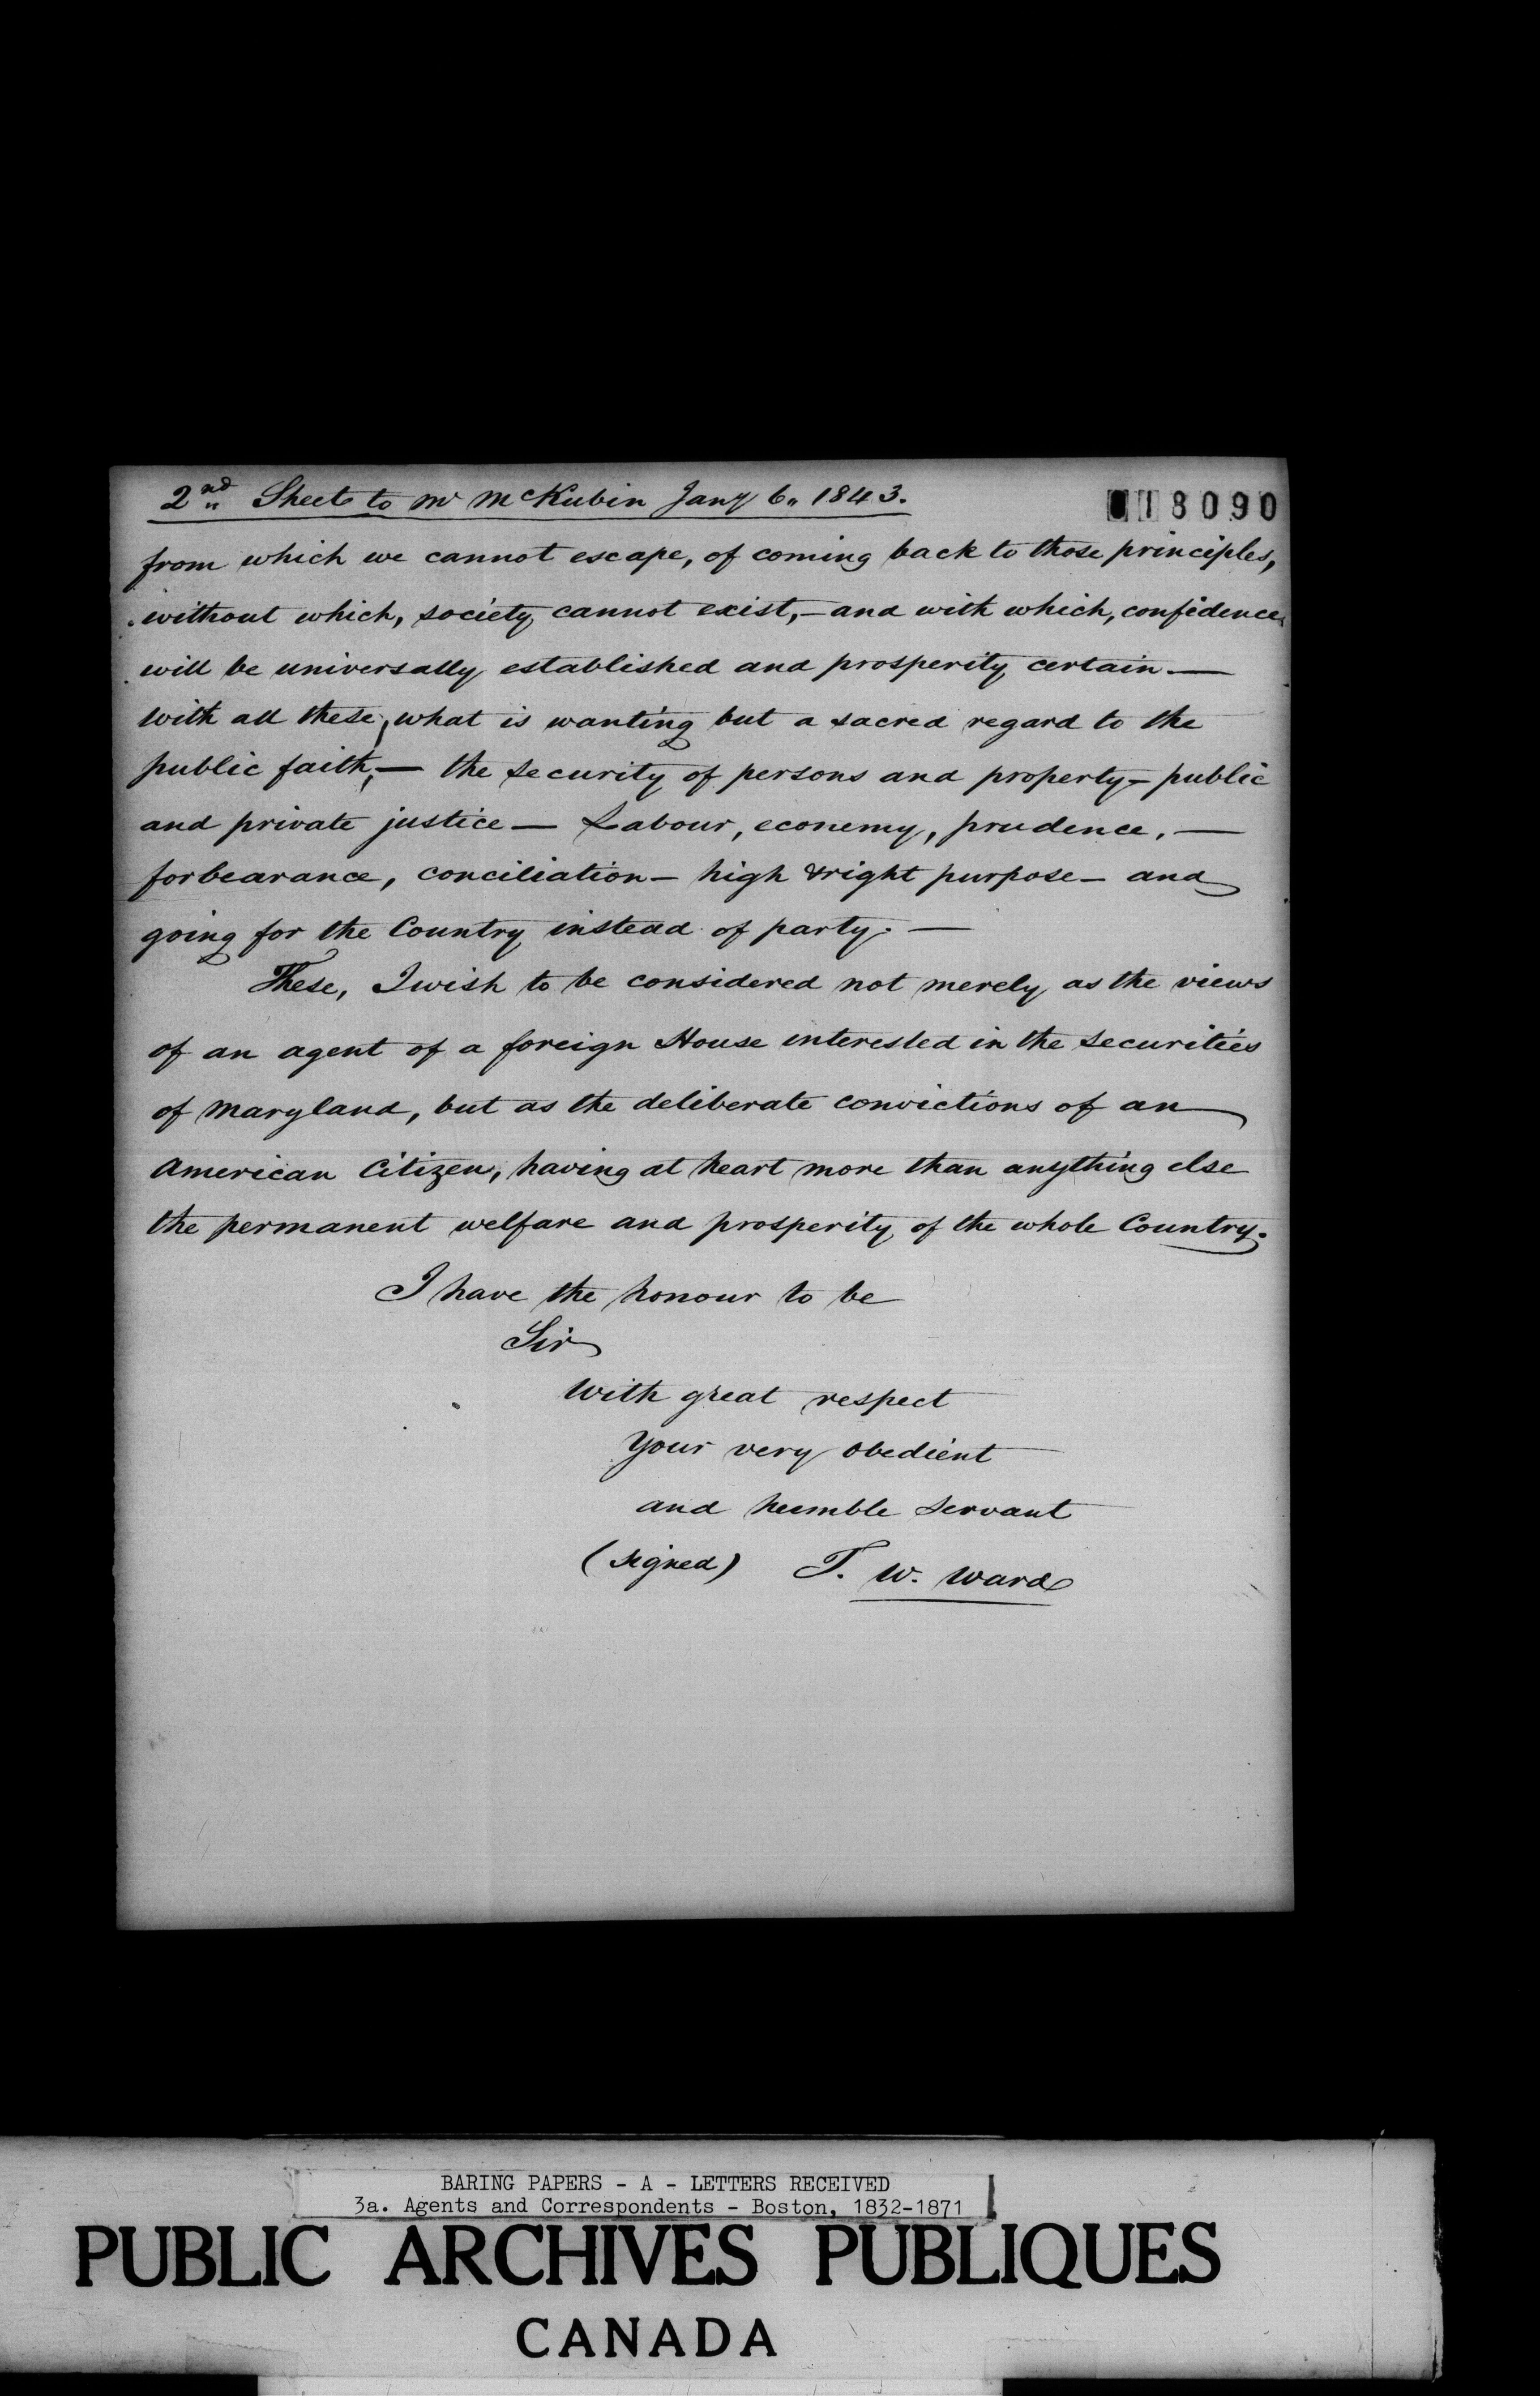 2nd Sheet to Mr McKubin Jany 6" 1843.
18090
from which we cannot escape, of coming back to those principles,
without which, society cannot exist,- and with which, confidence
will be universally established and prosperity certain —
With all these, what is wanting but a sacred regard to the
public faith, — the security of persons and property - public
and private justice — Labour, economy, prudence, —
forbearance, conciliation - high & right purpose - and
going for the Country instead of party. —
These, I wish to be considered not merely as the views
of an agent of a foreign House interested in the securities
of Maryland, but as the deliberate convictions of an
American Citizen, having at heart more than anything else
the permanent welfare and prosperity of the whole Country.
I have the honour to be
Sir
With great respect
Your very obedient
and humble Servant
(signed) T. W. Ward
BARING PAPERS - A - LETTERS RECEIVED
3a. Agents and Correspondents - Boston, 1832-1871
PUBLIC ARCHIVES PUBLIQUES
CANADA